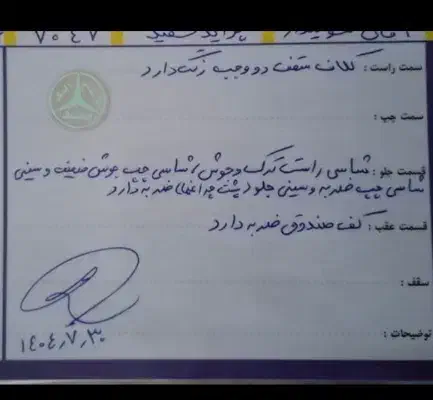 ۷۰۴۷ پراید سفید
سمت راست: کلاف سقف دو وجب رنگ دارد
سمت چپ:
قسمت جلو: شاسی راست ترک و جوش / شاسی چپ جوش ضعیف و سینی
شاسی چپ ضربه و سینی جلو (پشت چراغها) ضربه دارد
قسمت عقب: کف صندوق ضربه دارد
سقف:
توضیحات:
۱۴۰۴٫۷٫۳۰